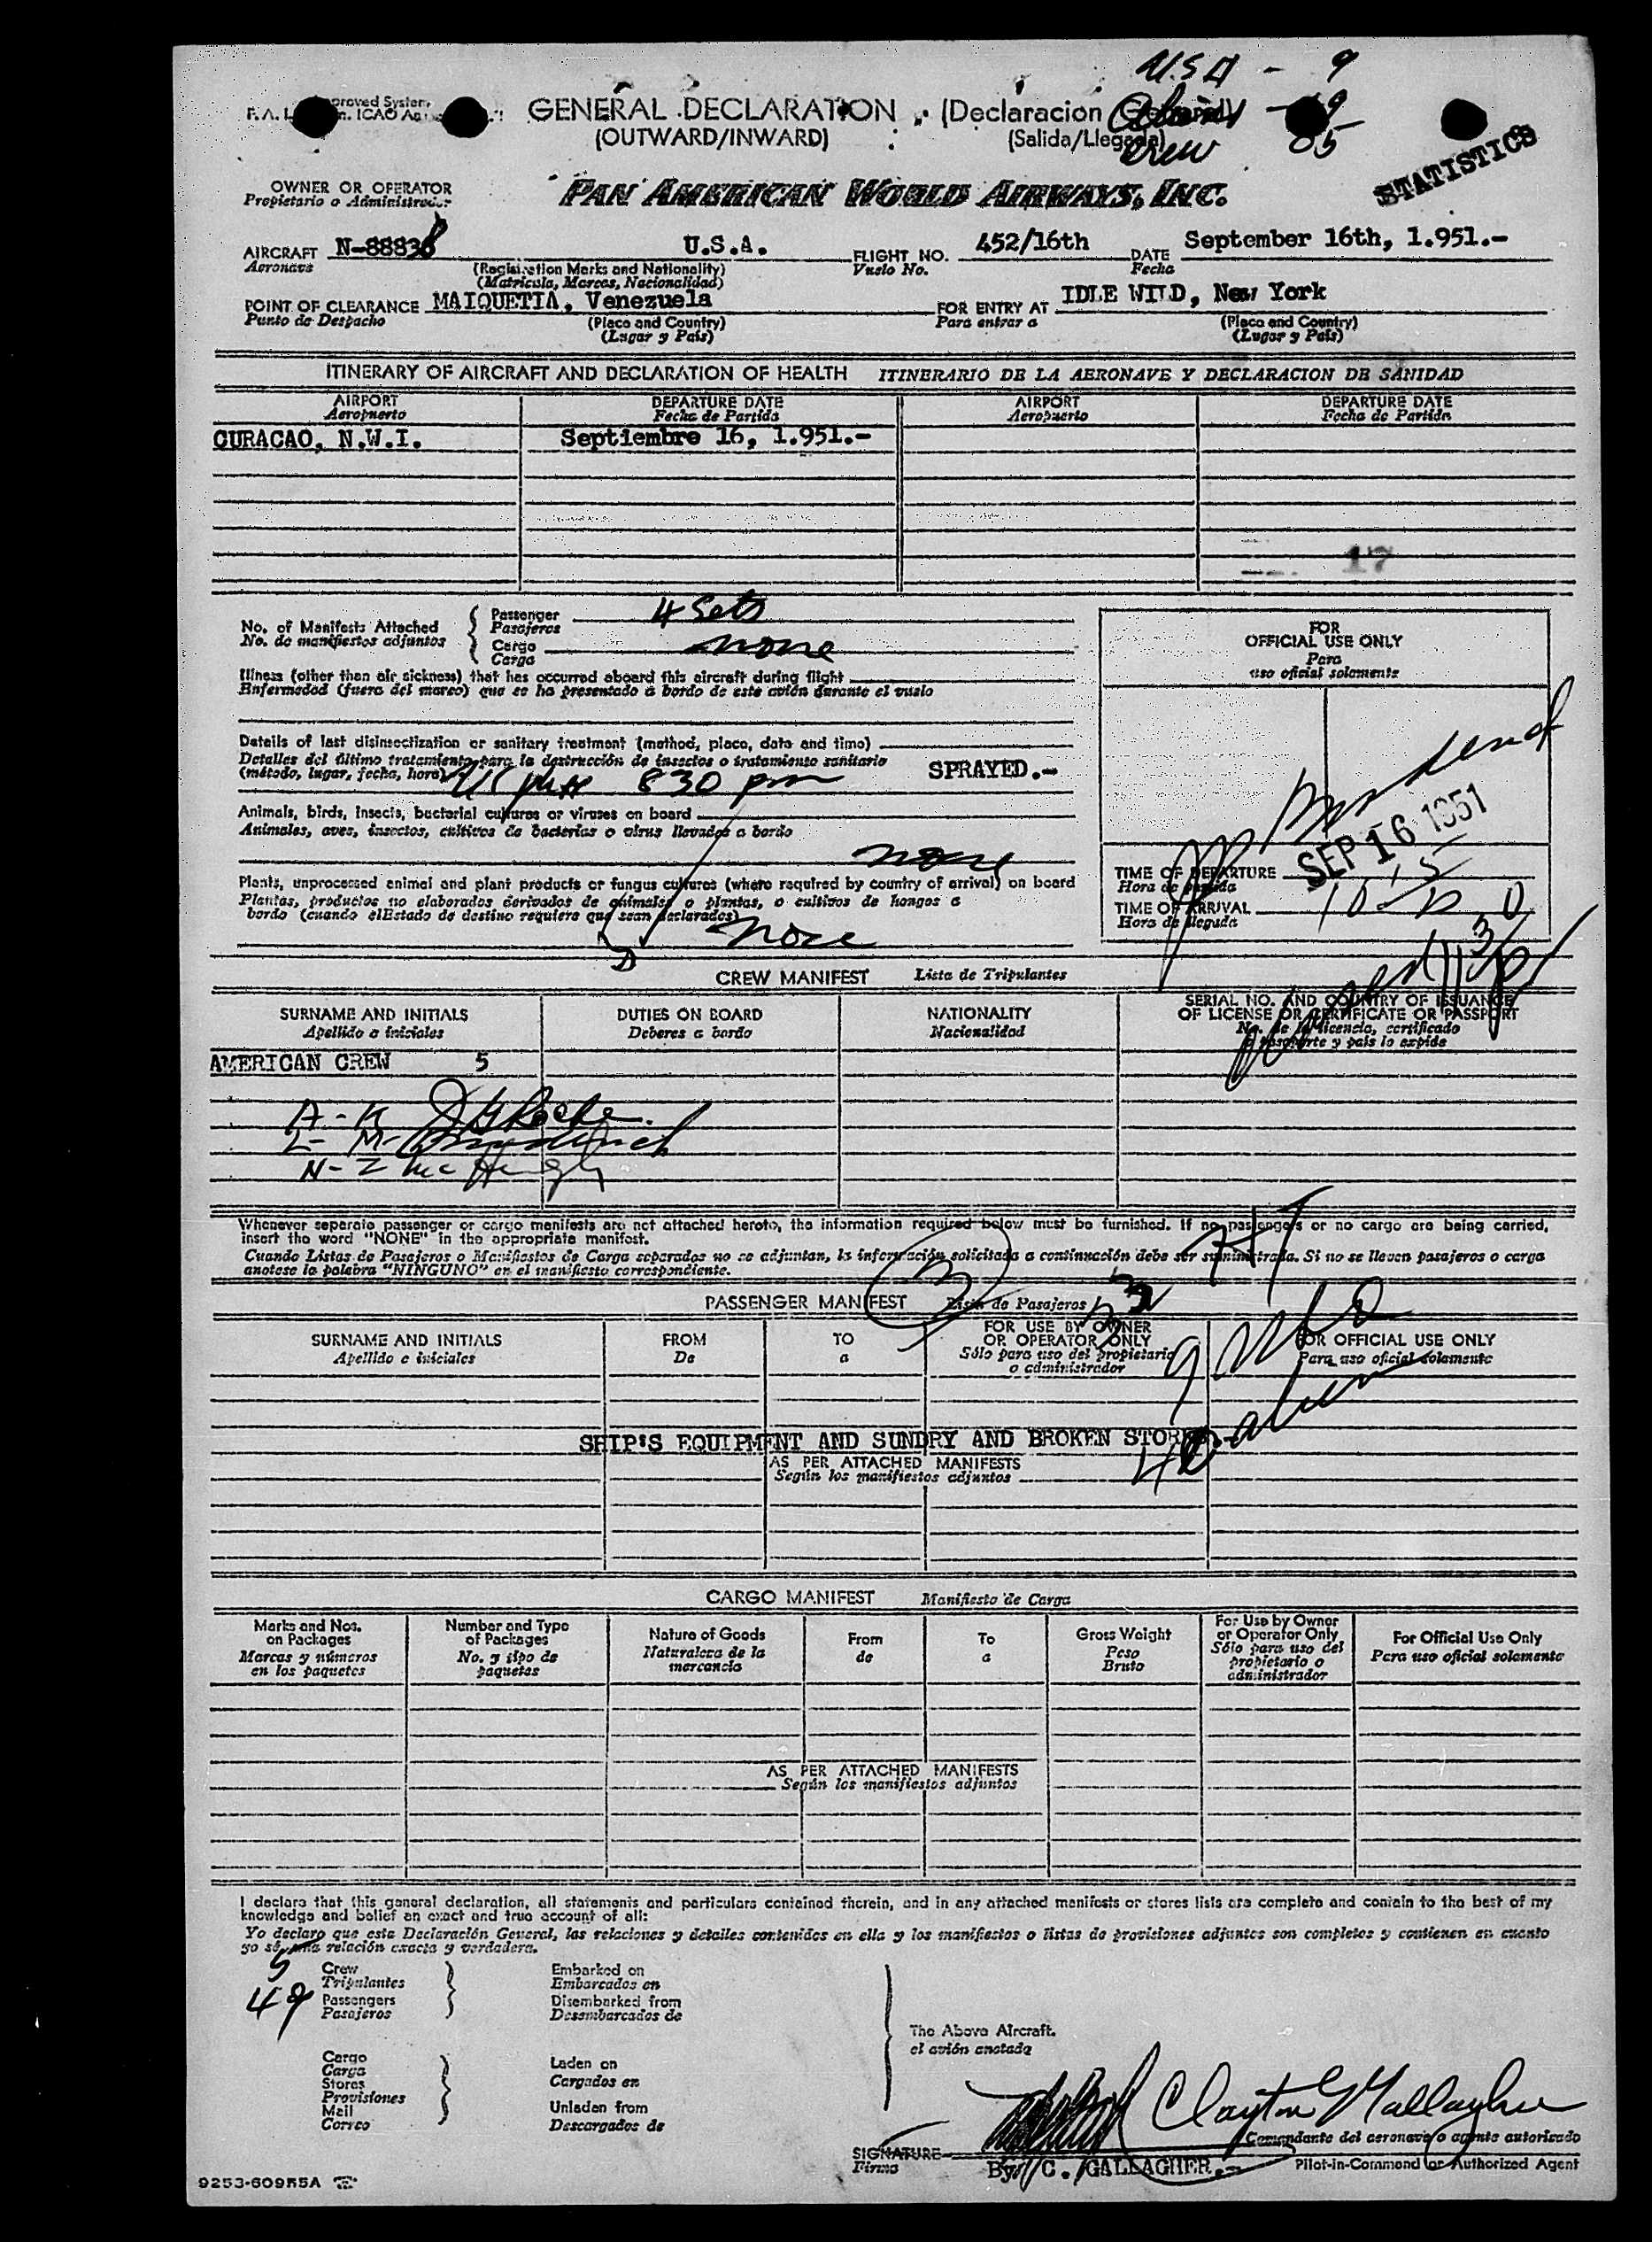 U.S.A - 9
GENERAL DECLARATION . (Declaración
(OUTWARD/INWARD) (Salida/Llegada)
crew 05
STATISTICS
OWNER OR OPERATOR PAN AMERICAN WORLD AIRWAYS, INC.
Propietario o Administrador
AIRCRAFT N-88838 U.S.A. FLIGHT NO. 452/16th DATE September 16th, 1.951.-
Aeronave (Registration Marks and Nationality) Vuelo No. Fecha
(Matrícula, Marcas, Nacionalidad)
POINT OF CLEARANCE MAIQUETIA, Venezuela FOR ENTRY AT IDLE WILD, New York
Punto de Despacho (Place and Country) Para entrar a (Place and Country)
(Lugar y País) (Lugar y País)
ITINERARY OF AIRCRAFT AND DECLARATION OF HEALTH ITINERARIO DE LA AERONAVE Y DECLARACION DE SANIDAD
AIRPORT DEPARTURE DATE AIRPORT DEPARTURE DATE
Aeropuerto Fecha de Partida Aeropuerto Fecha de Partida
CURACAO, N.W.I. Septiembre 16, 1.951.-
17
No. of Manifests Attached Passenger 4 Sets
No. de manifiestos adjuntos Pasajeros
Cargo none
Carga
FOR
OFFICIAL USE ONLY
Para
uso oficial solamente
Illness (other than air sickness) that has occurred aboard this aircraft during flight
Enfermedad (fuera del mareo) que se ha presentado a bordo de este avión durante el vuelo
Details of last disinsectization or sanitary treatment (method, place, date and time)
Detalles del último tratamiento para la destrucción de insectos o tratamiento sanitario
(método, lugar, fecha, hora) 830 pm SPRAYED.-
Animals, birds, insects, bacterial cultures or viruses on board
Animales, aves, insectos, cultivos de bacterias o virus llevados a bordo
none
SEP 16 1951
Plants, unprocessed animal and plant products or fungus cultures (where required by country of arrival) on board
Plantas, productos no elaborados derivados de animales o plantas, o cultivos de hongos a
bordo (cuando elEstado de destino requiere que sean declarados)
none
TIME OF DEPARTURE
Hora de partida
TIME OF ARRIVAL
Hora de llegada
CREW MANIFEST Lista de Tripulantes
SURNAME AND INITIALS DUTIES ON BOARD NATIONALITY SERIAL NO. AND COUNTRY OF ISSUANCE
Apellido e iniciales Deberes a bordo Nacionalidad OF LICENSE OR CERTIFICATE OR PASSPORT
No. de la licencia, certificado
o pasaporte y país lo expide
AMERICAN CREW 5
A - K
L - M-
N - Z
Whenever separate passenger or cargo manifests are not attached hereto, the information required below must be furnished. If no passengers or no cargo are being carried,
insert the word "NONE" in the appropriate manifest.
Cuando Listas de Pasajeros o Manifiestos de Carga separados no se adjuntan, la información solicitada a continuación debe ser suministrada. Si no se llevan pasajeros o carga
anotese la palabra "NINGUNO" en el manifiesto correspondiente.
PASSENGER MANIFEST Lista de Pasajeros
SURNAME AND INITIALS FROM TO FOR USE BY OWNER FOR OFFICIAL USE ONLY
Apellido e iniciales De a OR OPERATOR ONLY Para uso oficial solamente
Sólo para uso del propietario
o administrador
SHIP'S EQUIPMENT AND SUNDRY AND BROKEN STORES
AS PER ATTACHED MANIFESTS
Según los manifiestos adjuntos
CARGO MANIFEST Manifiesto de Carga
Marks and Nos. on Packages Number and Type of Packages Nature of Goods From To Gross Weight For Use by Owner or Operator Only For Official Use Only
Marcas y números en los paquetes No. y tipo de paquetes Naturaleza de la mercancía de a Peso Bruto Sólo para uso del propietario o administrador Para uso oficial solamente
AS PER ATTACHED MANIFESTS
Según los manifiestos adjuntos
I declare that this general declaration, all statements and particulars contained therein, and in any attached manifests or stores lists are complete and contain to the best of my
knowledge and belief an exact and true account of all:
Yo declaro que esta Declaración General, las relaciones y detalles contenidos en ella y los manifiestos o listas de provisiones adjuntos son completos y contienen en cuanto
yo sé, una relación exacta y verdadera.
5 Crew Embarked on
Tripulantes Embarcados en
49 Passengers Disembarked from
Pasajeros Desembarcados de
The Above Aircraft.
el avión anotada
Cargo Laden on
Carga Cargados en
Stores
Provisiones
Mail Unladen from
Correo Descargados de
Clayton Gallagher
Comandante del aeronave o agente autorizado
SIGNATURE
Firma By: C. GALLAGHER.- Pilot-in-Command or Authorized Agent
9253-609R5A